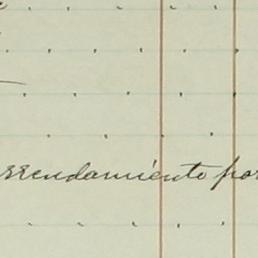 rrendamiento por